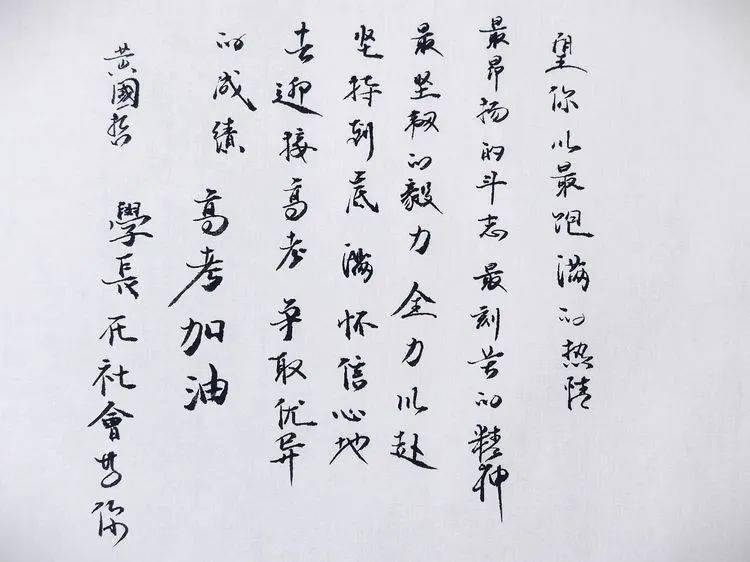 望你以最饱满的热情
最昂扬的斗志 最刻苦的精神
最坚韧的毅力 全力以赴
坚持到底 满怀信心地
去迎接高考 争取优异
的成绩
高考加油
學長在社會等你
黄國哲